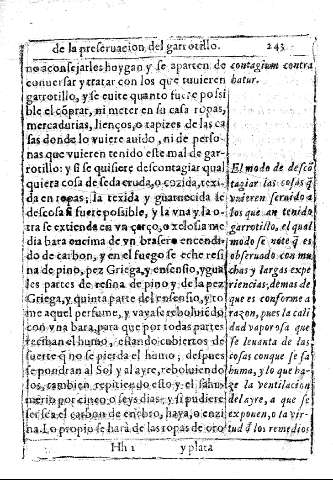 de la preseruacion del garrotillo. 243
no aconsejarles huygan y se aparten de
conuersar y tratar con los que tuuieren
garrotillo, y se euite quanto fuere possi
ble el cõprar, ni meter en su casa ropas,
mercadurias, lienços, o tapizes de las ca
sas donde lo vuiere auido, ni de perso-
nas que vuieren tenido este mal de gar-
rotillo: y si se quisiere descontagiar qual
quiera cosa de seda cruda, o cozida, texi-
da en ropas; la texida y guarnecida se
descosa si fuere possible, y la vna y la o-
tra se extienda en vn çarço, o xelosia me
dia bara encima de vn brasero encendi-
do de carbon, y en el fuego se eche resi
na de pino, pez Griega, y ensensio, ygua
les partes de resina de pino y de la pez
Griega, y quinta parte del ensensio, y to
me aquel perfume, y vayase reboluiendo
con vna bara, para que por todas partes
reciban el humo, estando cubiertos de
suerte q̃ no se pierda el humo; despues
se pondran al Sol y al ayre, reboluiendo
los, tambien repitiendo esto y el sahu-
merio por cinco o seys dias: y si pudiere
ser sea el carbon de enebro, haya, o enzi
na. Lo propio se hará de las ropas de oro
Hh 2 y plata
contagium contra
hatur.
El modo de descõ
tagiar las cosas q̃
vuieren seruido a
los que an tenido
garrotillo, el qual
modo se note q̃ es
obseruado con mu
chas y largas expe
riencias, demas de
que es conforme a
razon, pues la cali
dad vaporosa que
se leuanta de las
cosas con que se sa
huma, y lo que ha-
ze la ventilacion
del ayre, a que se
exponen, o la vir-
tud q̃ los remedios